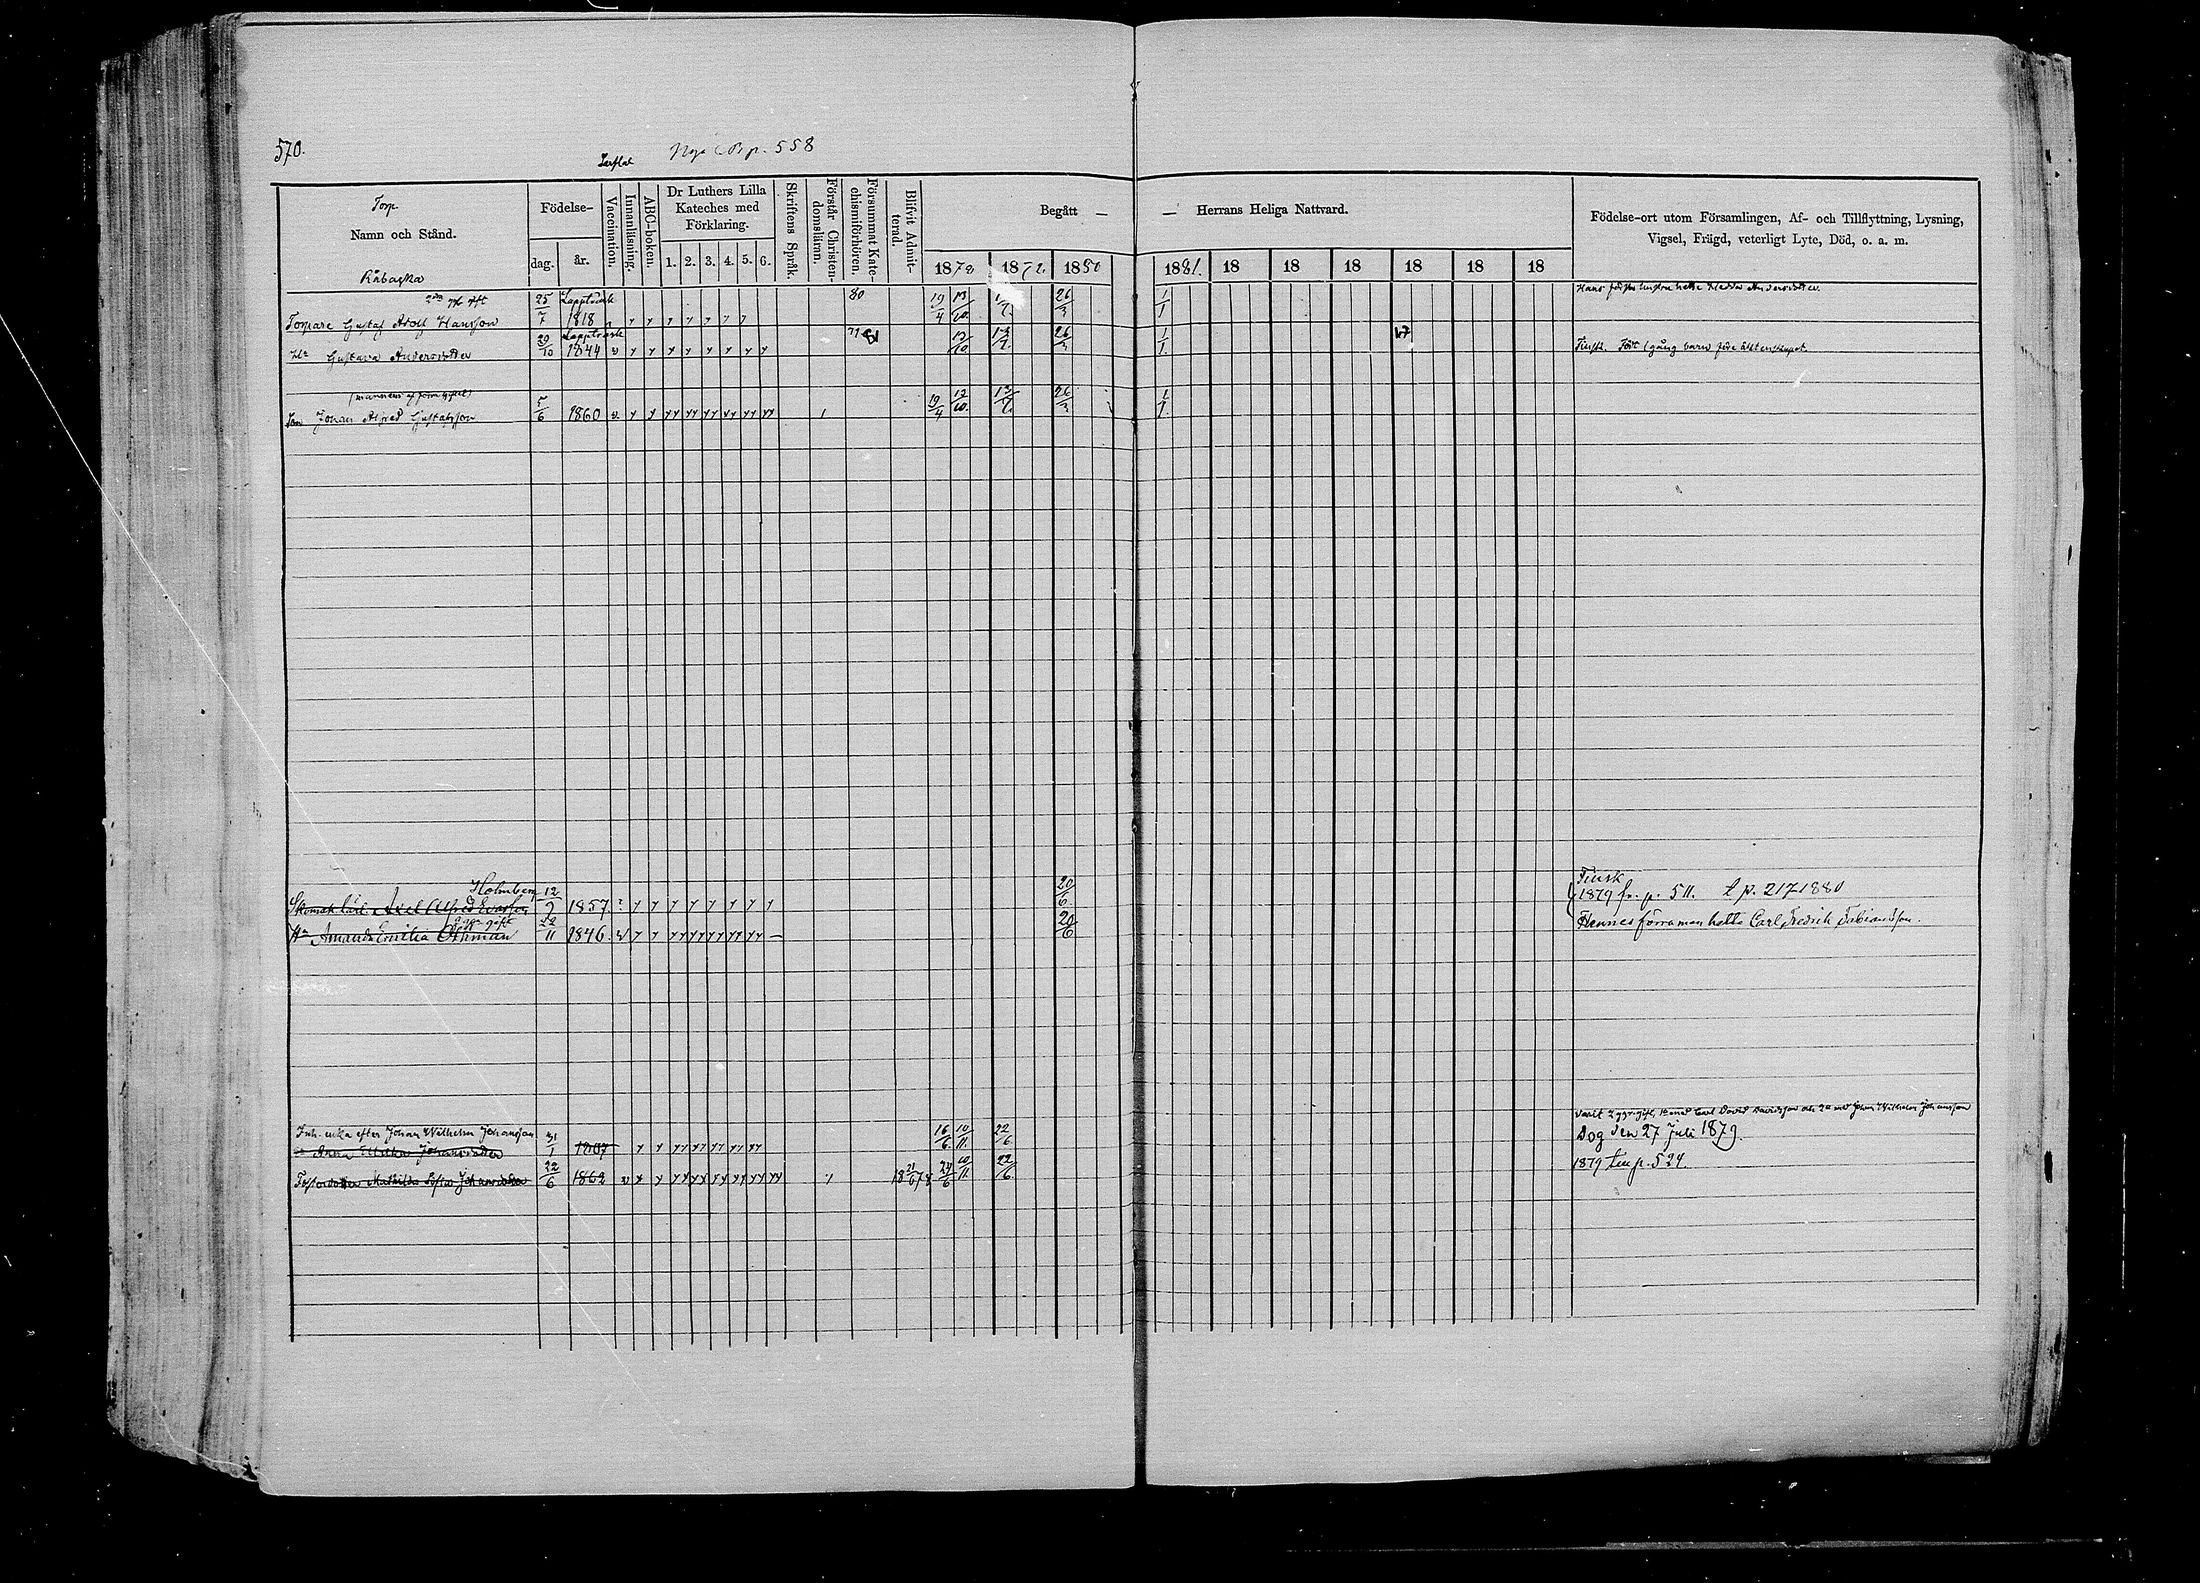 570.
Nya C B p. 558
Torp.
Namn och Stånd.
Råbacka
Födelse-
dag.
år.
Vaccination.
Innanläsning.
ABC-boken.
Dr Luthers Lilla
Kateches med
Förklaring.
1. 2. 3. 4. 5. 6.
Skriftens Språk.
Förstår Christen-
domsläran.
Försummat Kate-
chismiförhören.
Blifvit Admit-
terad.
Begått —
— Herrans Heliga Nattvard.
1878 1879. 1880 1881. 18 18 18 18 18 18
Födelse-ort utom Församlingen, Af- och Tillflyttning, Lysning,
Vigsel, Frägd, veterligt Lyte, Död, o. a. m.
2dra ggr gift 25/7 Lappträsk 80 19/4 13/10 26/3 1/1 Hans förra hustru hette Hedda Andersdotter.
Torpare Gustaf Adolf Hansson 1818
H:u Gustava Andersdotter 29/10 Lappträsk 1844 v y y y y y y y y 13/10 26/3 1/1 Finsk. Födt 1 gång barn före äktenskapet.
(mannens af förra giftet)
Son Johan Alfred Gustafsson 5/6 1860 v. y y yy yy yy yy yy yy 1 19/4 13/10. 26/3 1/1
Holmberg
Skomak. lärl. Axel Alfred 12 1857. ? y y y y y y y y 20/6 Finsk
1879 fr. p. 511. t p. 217 1880
2 ggr gift
H:u Amanda Emilia Öhman 22/11 1846. v y y yy yy yy yy yy — 20/6 Hennes förra man hette Carl Fredrik Fabiansson.
Varit 2 ggr gift, 1o med Carl David Davidsson och 2o med Johan Wilhelm Johansson
Inh. enka efter Johan Wilhelm Johansson 31/1 16/6 10/11 22/6 Dog den 27 Juli 1879.
Anna Ulrika Johansdotter 1807 y y yy yy yy yy yy
Fosterdotter Mathilda Sofia Johansdotter 22/6 1862 v y y yy yy yy yy yy yy y 18 21/6 78 24/6 10/11 22/6 1879 till p. 524.